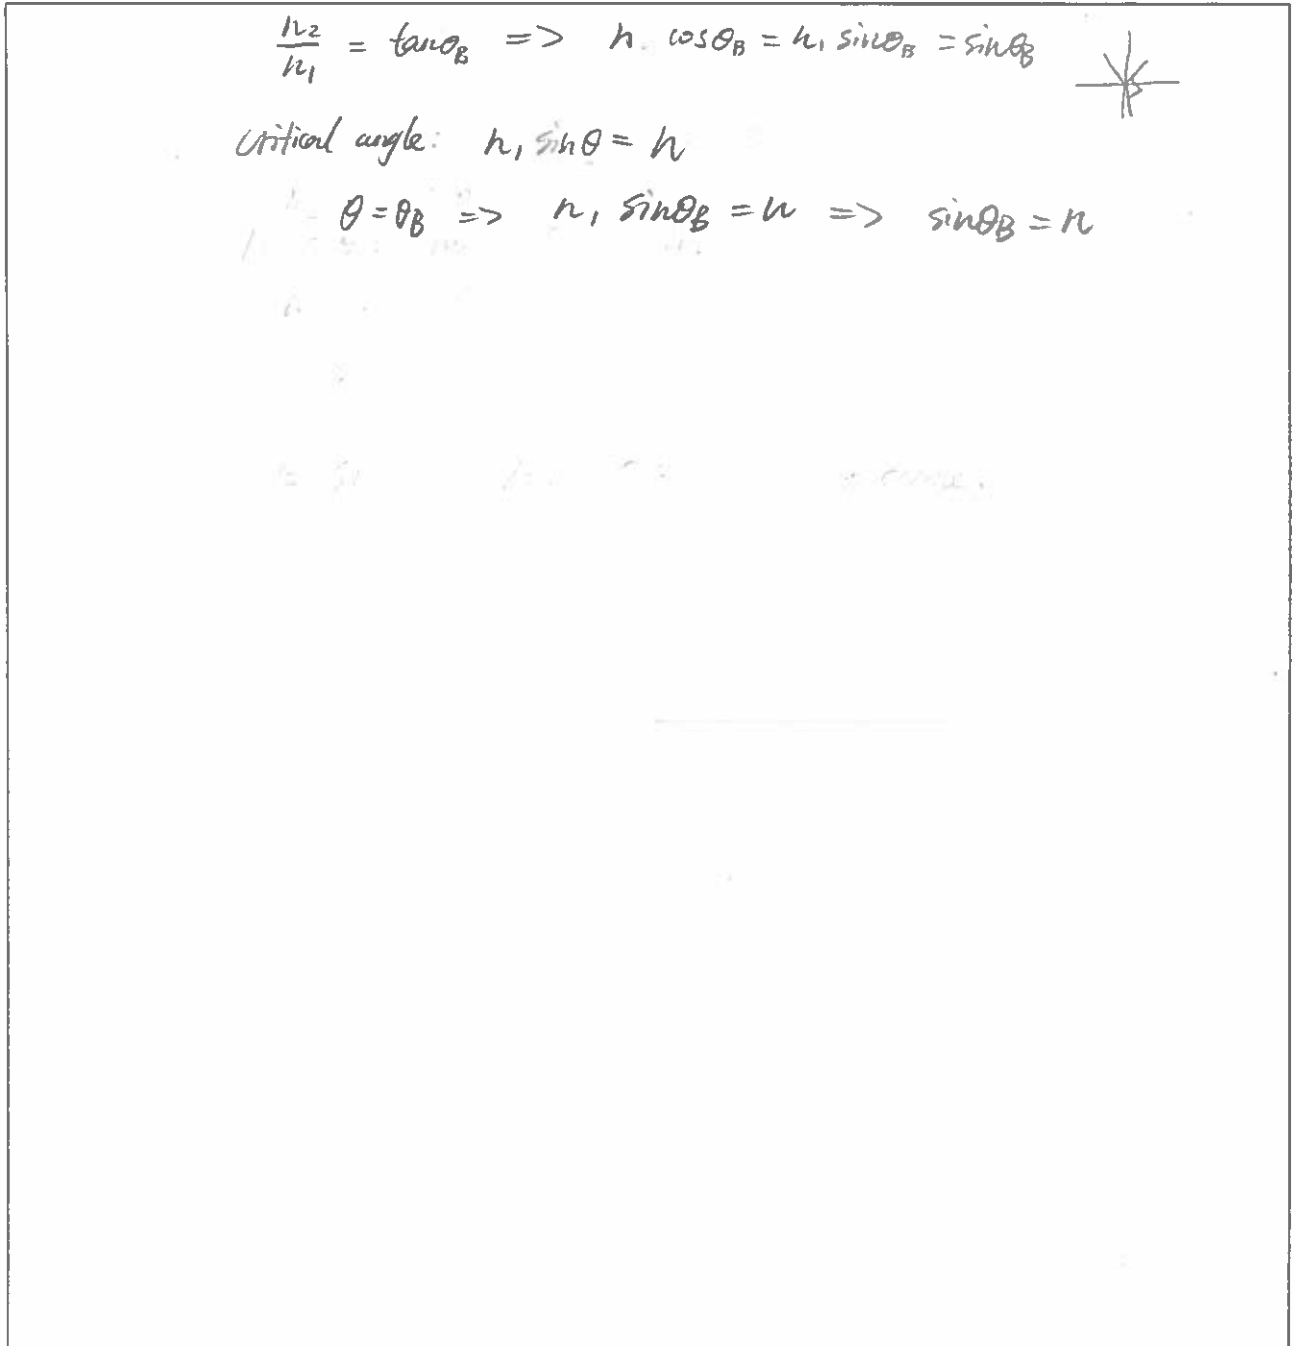 n₂/n₁ = tanθ_B => n cosθ_B = n₁ sinθ_B = sinθ_B
critical angle: n₁ sinθ = n
θ = θ_B => n₁ sinθ_B = n => sinθ_B = n